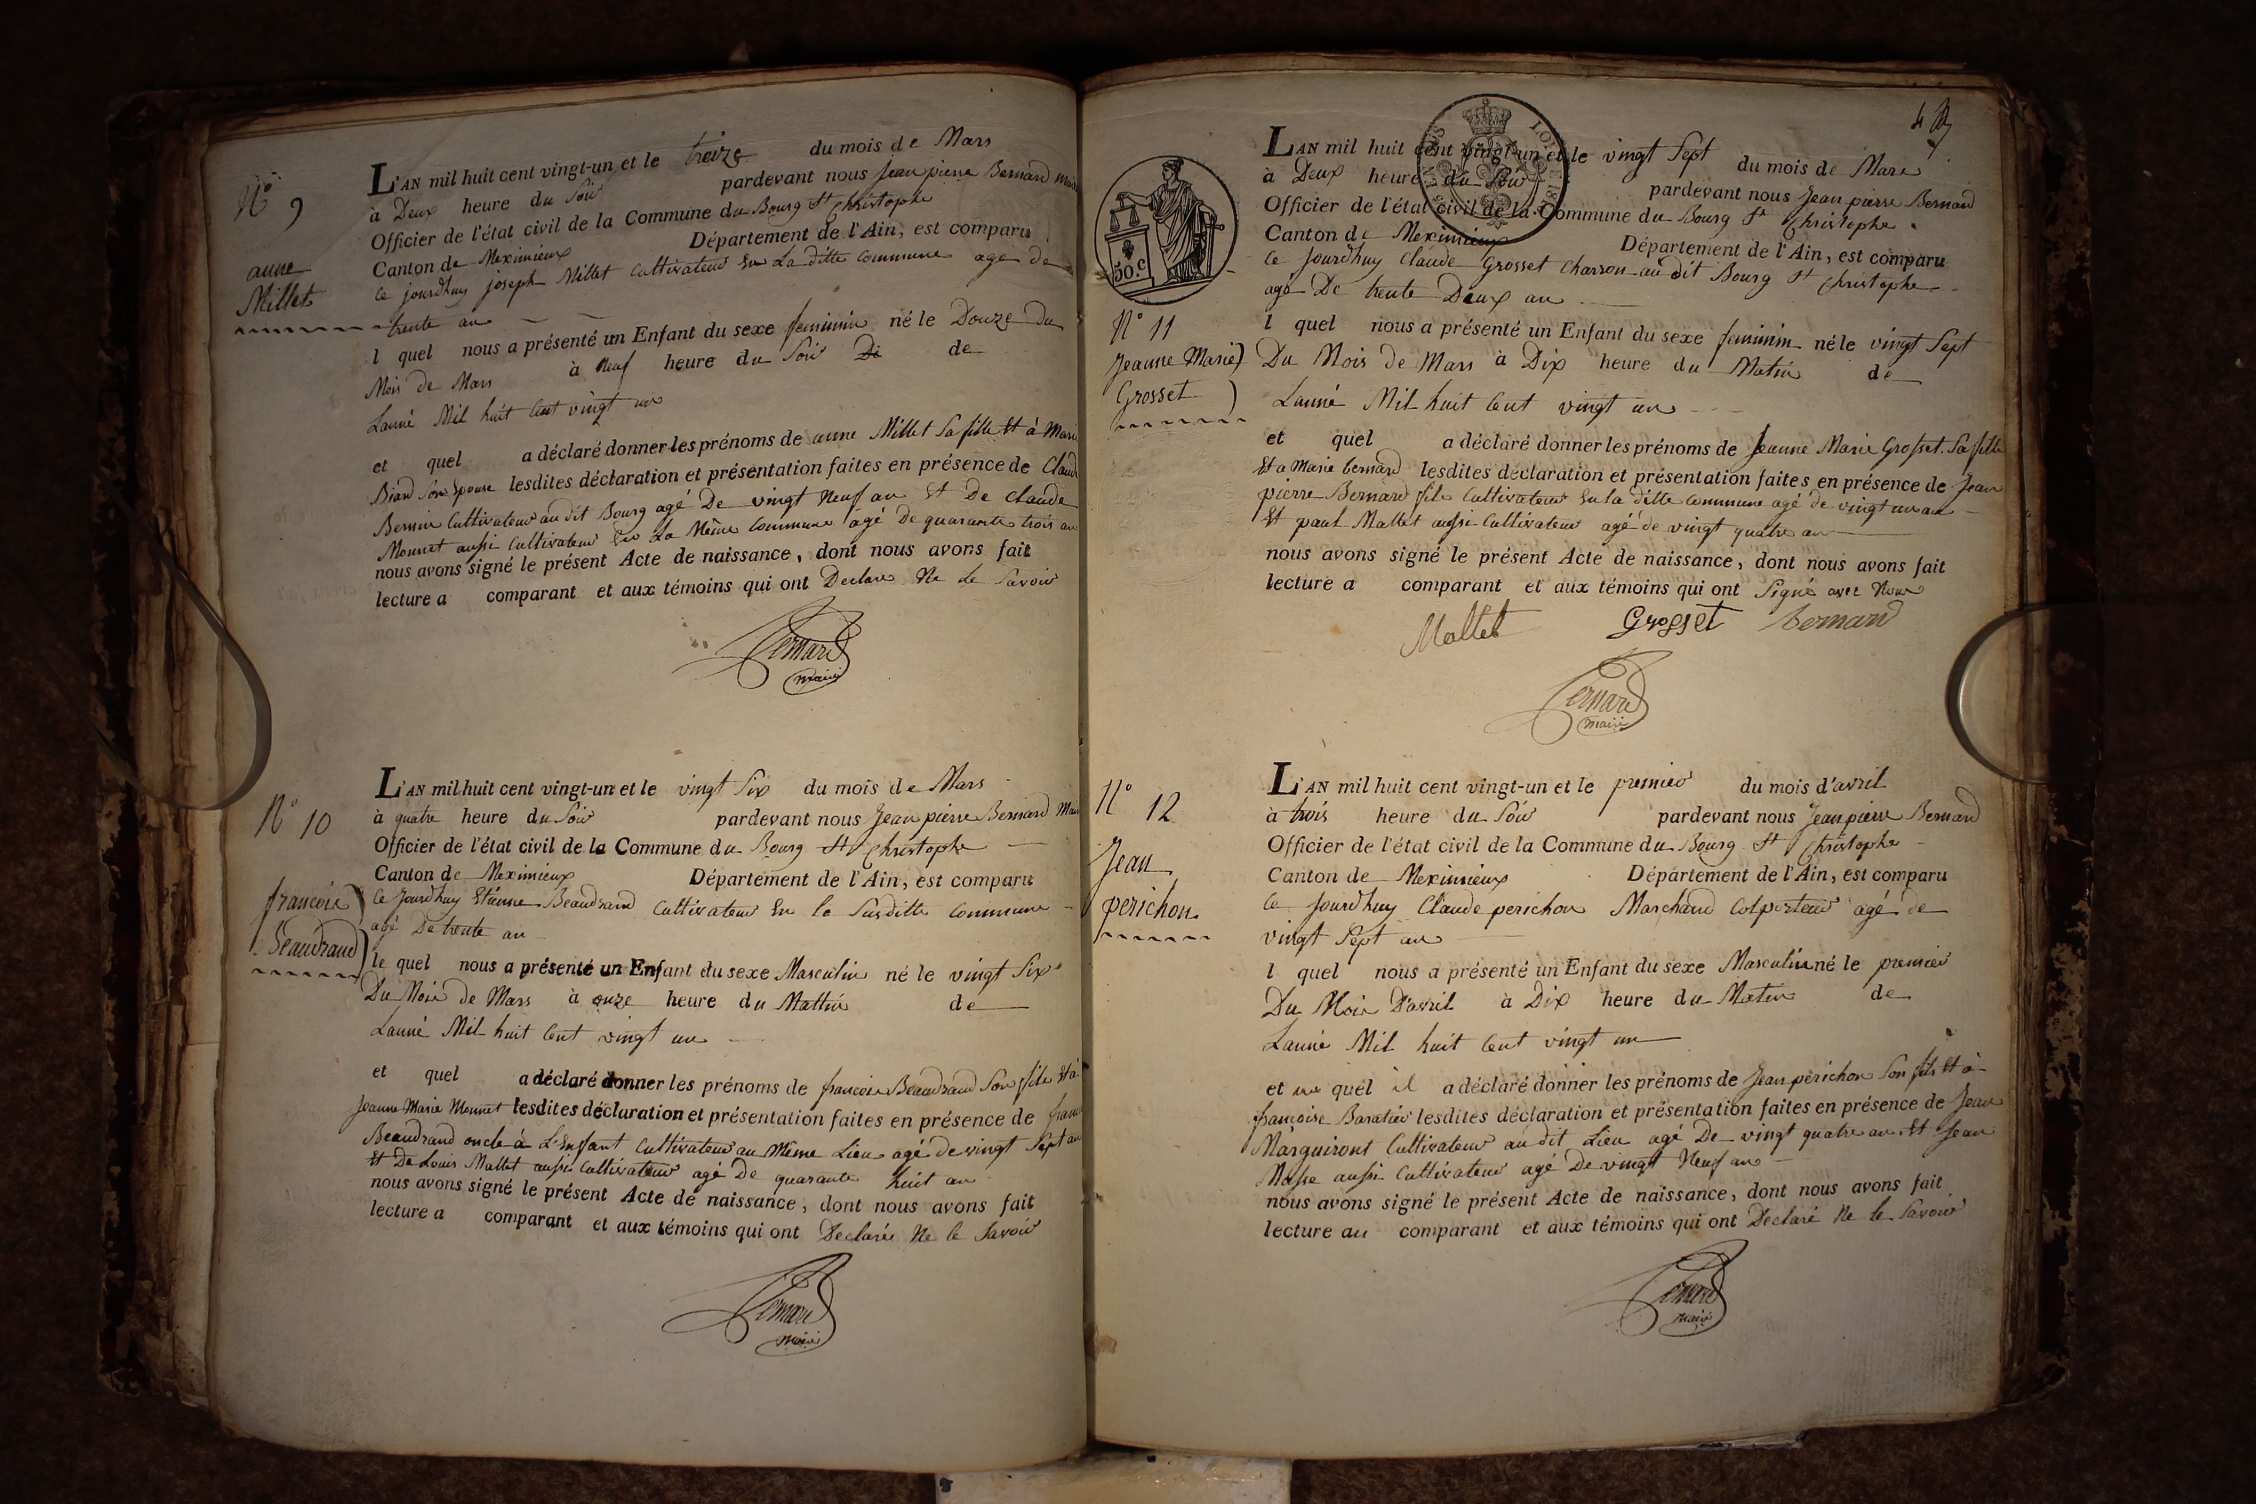 N° 9
anne
Millet
L'AN mil huit cent vingt-un et le treize du mois de Mars
à Deux heure du Soir pardevant nous Jean pierre Bernard maire
Officier de l'état civil de la Commune du Bourg St Christophe
Canton de Meximieux Département de l'Ain, est comparu
Ce jourdhuy joseph Millet Cultivateur En La ditte Commune age de
trente an
l quel nous a présenté un Enfant du sexe feminin né le Douze Du
Mois de Mars à Neuf heure du Soir de
Lanné Mil huit Cent vingt un
et quel a déclaré donner les prénoms de anne Millet Sa fille Et à Marie
Biard Son Epouse lesdites déclaration et présentation faites en présence de Claude
Bernin Cultivateur au dit Bourg agé De vingt Neuf an Et De Claude
Monnet aussi Cultivateur En La Même Commune agé De quarante trois an
nous avons signé le présent Acte de naissance, dont nous avons fait
lecture a comparant et aux témoins qui ont Declare Ne Le Savoir
Bernard
maire
N° 10
francoise
Beaudrand
L'AN mil huit cent vingt-un et le vingt Six du mois de Mars
à quatre heure du Soir pardevant nous Jean pierre Bernard Maire
Officier de l'état civil de la Commune du Bourg St Christophe
Canton de Meximieux Département de l'Ain, est comparu
Ce Jourdhuy Etienne Beaudrand Cultivateur En la Susditte Commune
agé De trente an
le quel nous a présenté un Enfant du sexe Masculin né le vingt Six
Du Mois de Mars à onze heure du Mattin de
Lanné Mil huit Cent vingt un
et quel a déclaré donner les prénoms de francois Beaudrand Son fils Et à
Jeanne Marie Monnet lesdites déclaration et présentation faites en présence de
Beaudrand oncle à L'Enfant Cultivateur au Même Lieu agé de vingt Sept an
Et De Louis Mallet aussi Cultivateur agé De quarante huit an
nous avons signé le présent Acte de naissance, dont nous avons fait
lecture a comparant et aux témoins qui ont Declarés Ne le Savoir
Bernard
maire
50.C
N° 11
Jeanne Marie
Grosset
L'AN mil huit cent vingt-un et le vingt Sept du mois de Mars
à Deux heure du Soir pardevant nous Jean pierre Bernard
Officier de l'état civil de la Commune du Bourg St Christophe
Canton de Meximieux Département de l'Ain, est comparu
Ce Jourdhuy Claude Grosset Charron au dit Bourg St Christophe
age De trente Deux an
l quel nous a présenté un Enfant du sexe feminin né le vingt Sept
Du Mois de Mars à Dix heure du Matin de
Lanné Mil huit Cent vingt un
et quel a déclaré donner les prénoms de Jeanne Marie Grosset Sa fille
Et a Marie bernard lesdites déclaration et présentation faites en présence de Jean
pierre Bernard fils Cultivateur En la ditte Commune agé de vingt un an
Et paul Mallet aussi Cultivateur agé de vingt quatre an
nous avons signé le présent Acte de naissance, dont nous avons fait
lecture a comparant et aux témoins qui ont Signé avec Nous
Mallet Grosset bernard
Bernard
maire
N° 12
Jean
perichon
L'AN mil huit cent vingt-un et le premier du mois d'avril
à trois heure du Soir pardevant nous Jean pierre Bernard
Officier de l'état civil de la Commune du Bourg St Christophe
Canton de Meximieux Département de l'Ain, est comparu
Ce Jourdhuy Claude perichon Marchand Colporteur agé de
vingt Sept an
l quel nous a présenté un Enfant du sexe Masculin né le premier
Du Mois D'avril à Dix heure du Matin de
Lanné Mil huit Cent vingt un
et quel il a déclaré donner les prénoms de Jean perichon Son fils Et à
françoise Baratier lesdites déclaration et présentation faites en présence de Jean
Marguiront Cultivateur au dit Lieu agé De vingt quatre an Et Jean
Masse aussi Cultivateur agé De vingt Neuf an
nous avons signé le présent Acte de naissance, dont nous avons fait
lecture au comparant et aux témoins qui ont Declaré Ne le Savoir
Bernard
maire